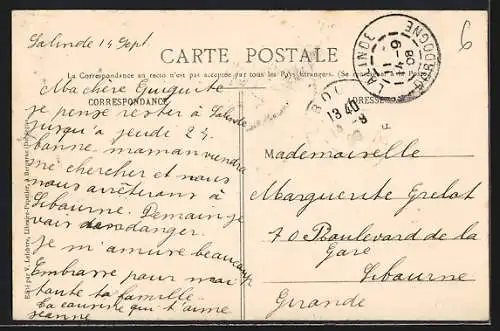 Lalinde 14 Sept
6
CARTE POSTALE
La Correspondance au recto n'est pas acceptée par tous les Pays étrangers. (Se
CORRESPONDANCE
ADRESSE
LALINDE
DORDOGNE
6-11
08
13 40
Ma chère Guiguite
je pense rester à Lalinde
jusqu'à jeudi 24.
bonne maman viendra
me chercher et nous
nous arrêterons à
Libourne. Demain je
vais danger.
je m'amuse beaucoup
Embrasse pour moi
toute ta famille.
Ta cousine qui t'aime
Jeanne
Mademoiselle
Marguerite Grelot
70 Boulevard de la
Gare
Libourne
Gironde